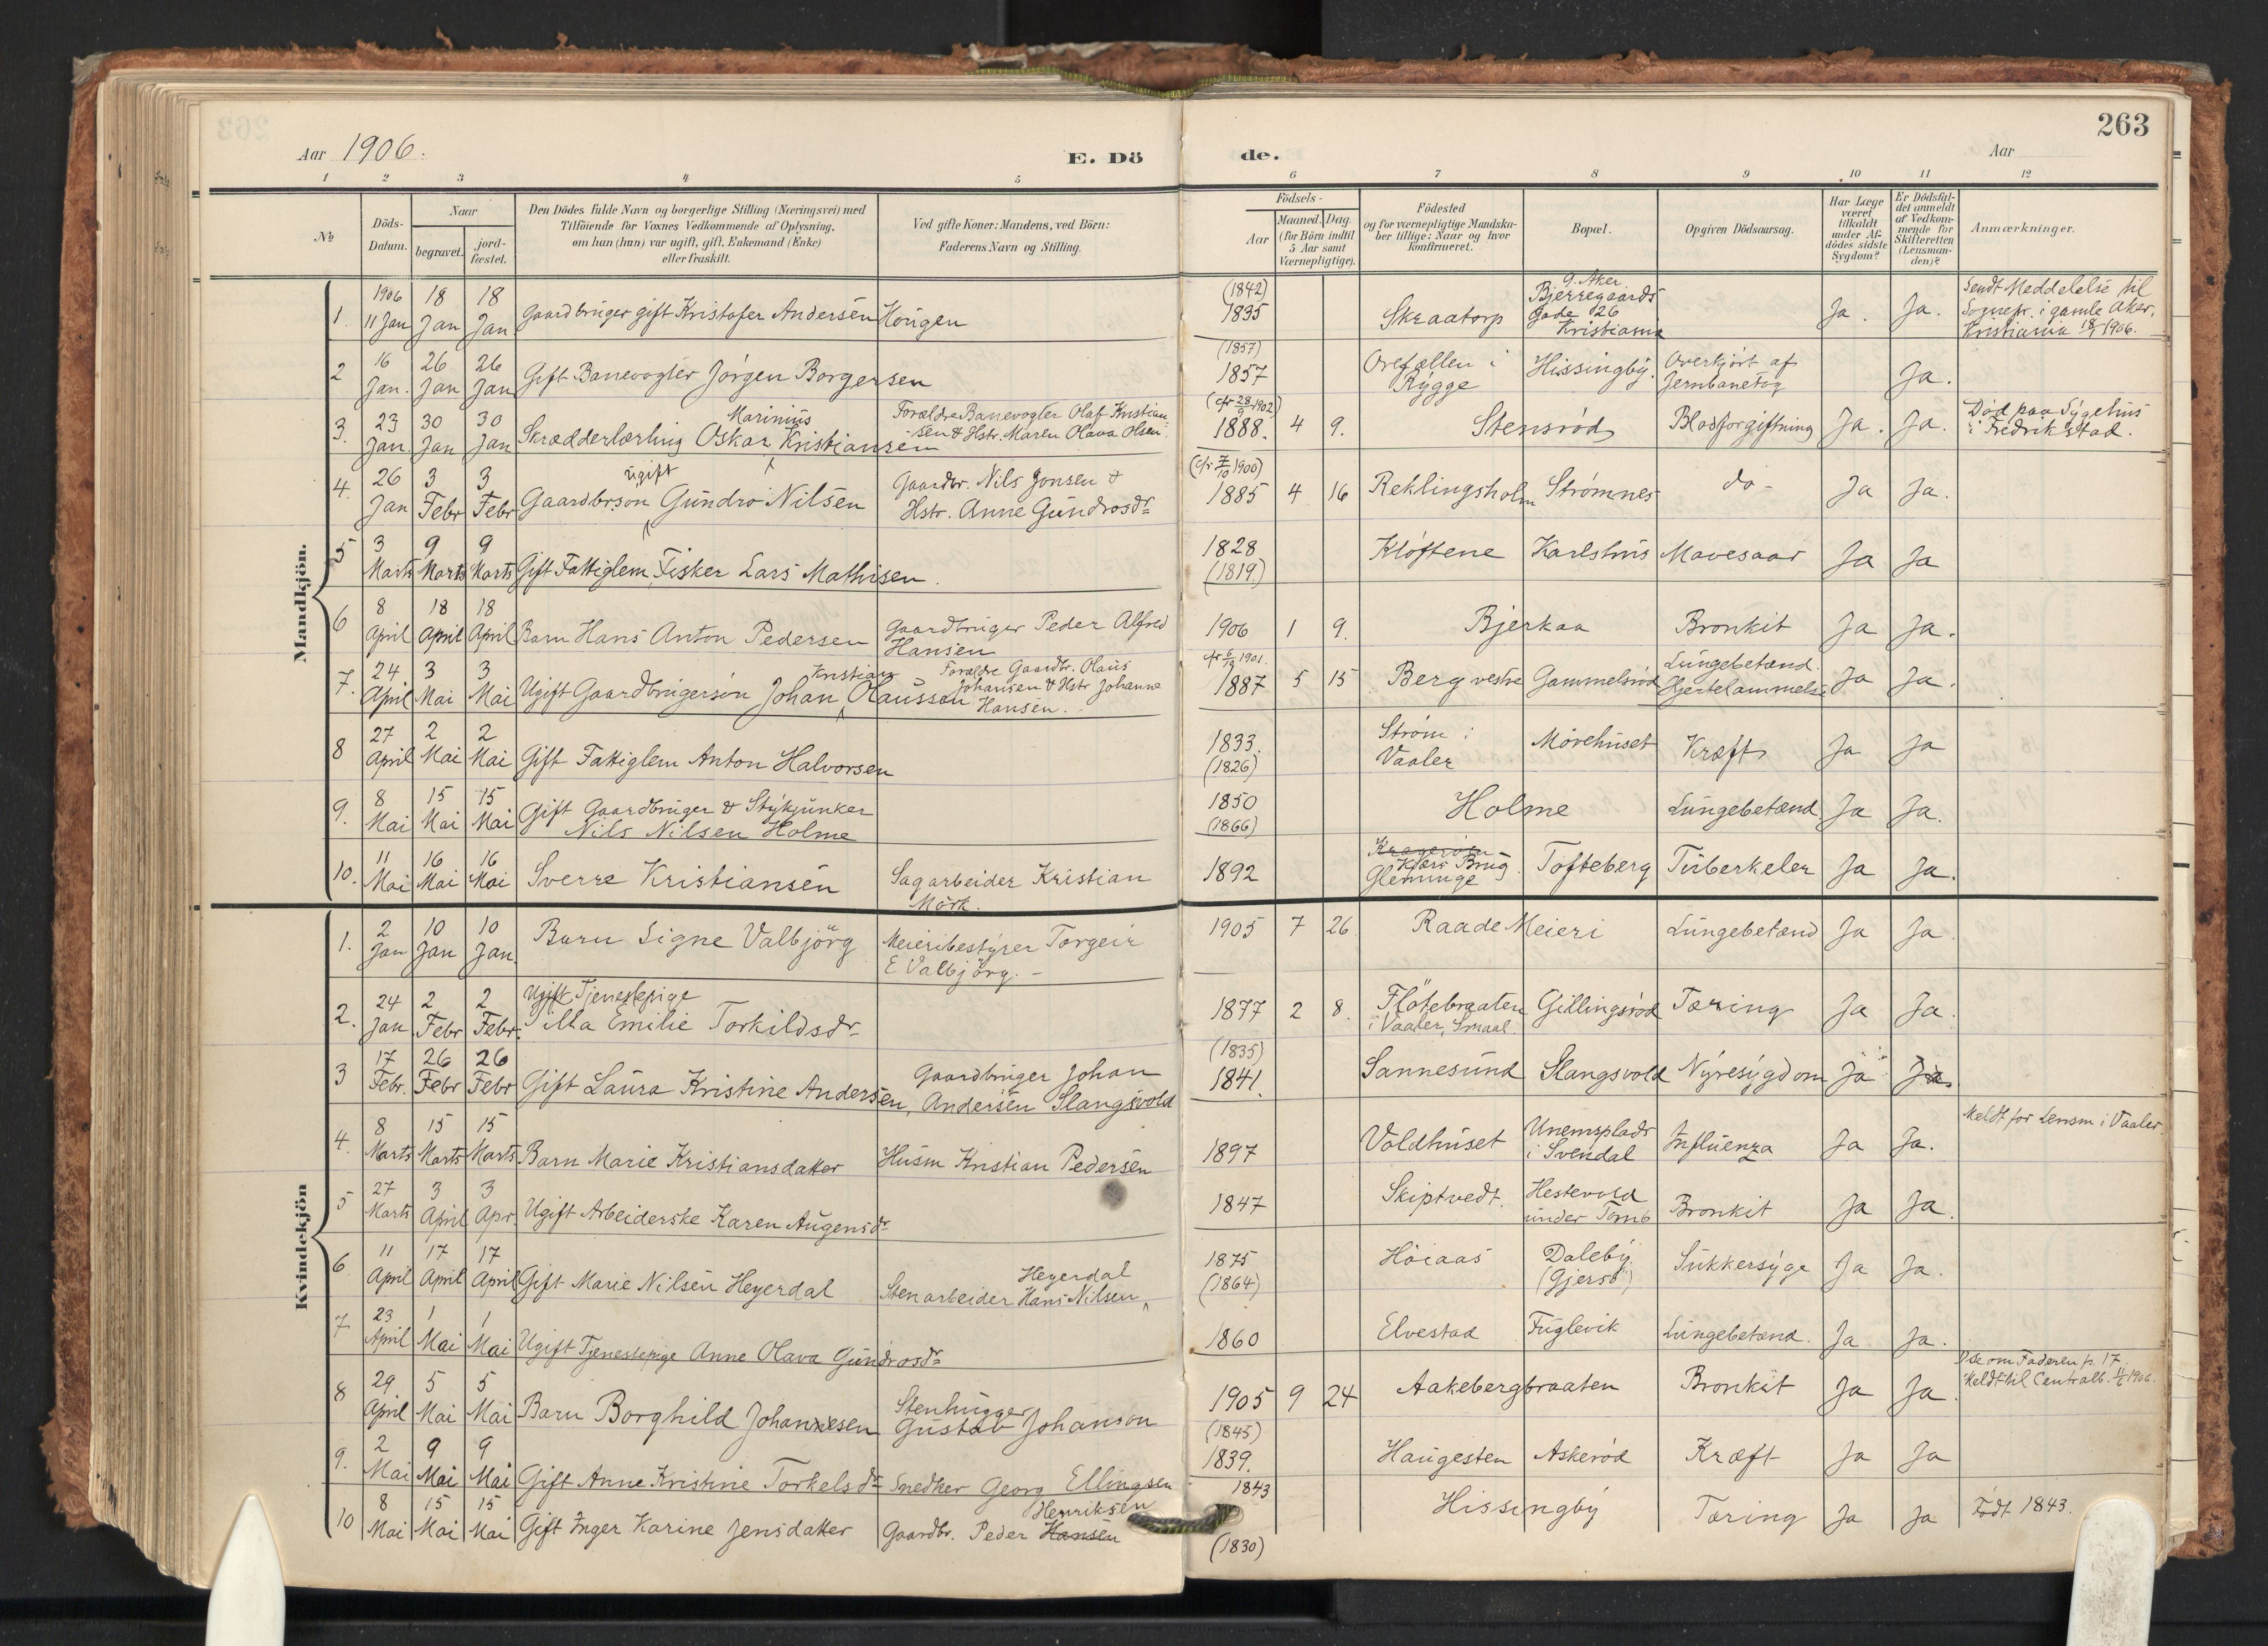 263
Aar 1906.
E. Dö de.
Aar
1 2 3 4 5 6 7 8 9 10 11 12
№
Döds-Datum.
Naar
begravet.
jord-fæstet.
Den Dödes fulde Navn og borgerlige Stilling (Næringsvei) med
Tilföiende for Voxnes Vedkommende af Oplysning,
om han (hun) var ugift, gift, Enkemand (Enke)
eller fraskilt.
Ved gifte Koner: Mandens, ved Börn:
Faderens Navn og Stilling.
Födsels-
Aar
Maaned. Dag.
(for Börn indtil
5 Aar samt
Værnepligtige).
Födested
og for værnepligtige Mandska-
ber tillige: Naar og hvor
konfirmeret.
Bopæl.
Opgiven Dödsaarsag.
Har Læge
været
tilkaldt
under Af-
dödes sidste
Sygdom?
Er Dödsfal-
det anmeldt
af Vedkom-
mende for
Skifteretten
(Lensman-
den)?
Anmærkninger.
Mandkjön.
1. 1906 11 Jan 18 Jan 18 Jan Gaardbruger gift Kristofer Andersen Hougen (1842) 1835 Skraatorp G. Aker Bjerregaards Gade 26 Kristiania Ja. Ja. Sendt Meddelelse til Sognepr. i gamle Aker, Kristiania 18/1 1906.
2 16 Jan. 26 Jan 26 Jan Gift Banevogter Jörgen Borgersen (1857) 1857 Orefællen i Rygge Hissingby. Overkjört af Jernbanetog Ja.
3. 23 Jan. 30 Jan 30 Jan Skrædderlærling Oskar Marinius Kristiansen Forældre Banevogter Olaf Kristiansen & Hstr. Maren Olava Olsen. (cfr 28/9 1902) 1888. 4 9. Stensröd Blodforgiftning Ja. Ja. Död paa Sygehus i Fredrikstad.
4. 26 Jan 3 Febr 3 Febr Gaardbr.son ugift Gundro Nilsen Gaardbr. Nils Jonsen & Hstr. Anne Gundrosdr (cfr 7/10 1900) 1885 4 16 Reklingsholm Strömnes do- Ja Ja.
5 3 Marts 9 Marts 9 Marts Gift Fattiglem, Fisker Lars Mathisen. 1828 (1819.) Klöftene Karlshus Mavesaar Ja Ja
6 8 April 18 April 18 April Barn Hans Anton Pedersen Gaardbruger Peder Alfred Hansen 1906 1 9. Bjerkaa Bronkit Ja Ja.
7. 24 April 3 Mai 3 Mai Ugift Gaardbrugersön Johan Kristian Olaussen Forældre Gaardbr. Olaus Johansen & Hstr Johanne Hansen. 1901. 1887 5 15 Berg vestre Gammelsröd Lungebetænd. Hjertelammelse Ja Ja.
8 27 April 2 Mai 2 Mai Gift Fattiglem Anton Halvorsen 1833. (1826) Ström i Vaaler Mörehuset Kræft Ja Ja
9. 8 Mai 15 Mai 15 Mai Gift Gaardbruger & Stykjunker Nils Nilsen Holme 1850 (1866) Holme Lungebetænd Ja Ja.
10. 11 Mai 16 Mai 16 Mai Sverre Kristiansen Sagarbeider Kristian Mörk. 1892 Brug Glemminge Tofteberg Tuberkeler Ja Ja.
Kvindekjön
1. 2 Jan 10 Jan 10 Jan. Barn Signe Valbjörg Meieribestyrer Torgeir E Valbjörg. 1905 7 26. Raade Meieri Lungebetænd Ja Ja.
2. 24 Jan 2 Febr 2 Febr. Ugift Tjenestepige Tilla Emilie Torkildsdr 1877 2 8. Flötebraaten i Vaaler, Smaal. Gillingsröd Tæring Ja Ja.
3 17 Febr. 26 Febr 26 Febr Gift Laura Kristine Andersen, Gaardbruger Johan Andersen Slangsvold (1835) 1841. Sannesund Slangsvold Nyresygdom Ja Ja.
4. 8 Marts 15 Marts 15 Marts Barn Marie Kristiansdatter Husm Kristian Pedersen 1897 Voldhuset Unemsplads i Svendal Influenza Ja Ja. Meldt for Lensm i Vaaler.
5 27 Marts 3 April 3 Apr. Ugift Arbeiderske Karen Augensdr 1847 Skiptvedt. Hestevold under Tomb Bronkit Ja Ja.
6 11 April 17 April 17 April Gift Marie Nilsen Heyerdal Stenarbeider Hans Nilsen Heyerdal 1875 (1864) Höiaas Daleby (Gjersö) Sukkersyge Ja Ja.
7 23 April 1 Mai 1 Mai Ugift Tjenestepige Anne Olava Gundrosdr 1860 Elvestad Fuglevik Lungebetænd. Ja Ja.
8 29 April 5 Mai 5 Mai Barn Borghild Johannesen Stenhugger Gustav Johanson 1905 9 24 Aakebergbraaten Bronkit Ja Ja. Se om Faderen p. 17. Meldt til Centralb. 1906.
9. 2 Mai 9 Mai 9 Mai Gift Anne Kristine Torkelsdr Snedker Georg Ellingsen (1845) 1839. Haugesten Askeröd Kræft Ja Ja
10 8 Mai 15 Mai 15 Mai Gift Inger Karine Jensdatter Gaardbr. Peder Hansen Henriksen 1843 (1830) Hissingby Tæring Ja Ja Födt 1843.